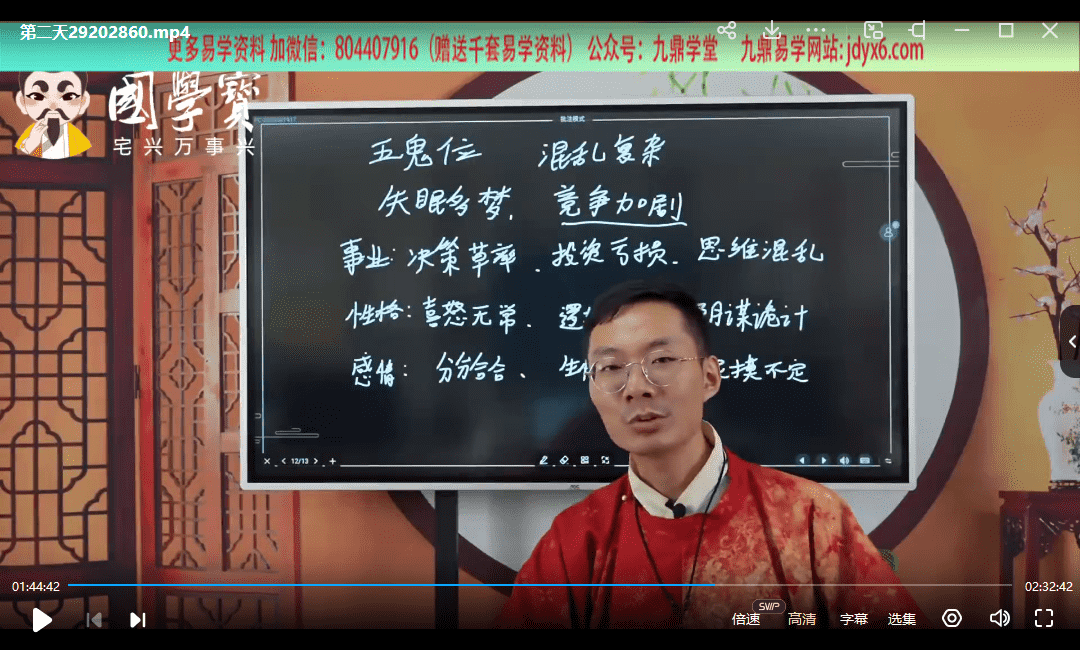 第二天29202860.mp4
更多易学资料 加微信：804407916（赠送千套易学资料） 公众号：九鼎学堂 九鼎易学网站:jdyx6.com
國學寶
宅兴万事兴
批注模式
五鬼位 混乱复杂
失眠多梦. 竞争加剧
事业: 决策草率. 投资亏损. 思维混乱
性格: 喜怒无常. 阴谋诡计
感情: 分分合合、 捉摸不定
12/13
01:44:42
02:32:42
SVIP
倍速 高清 字幕 选集